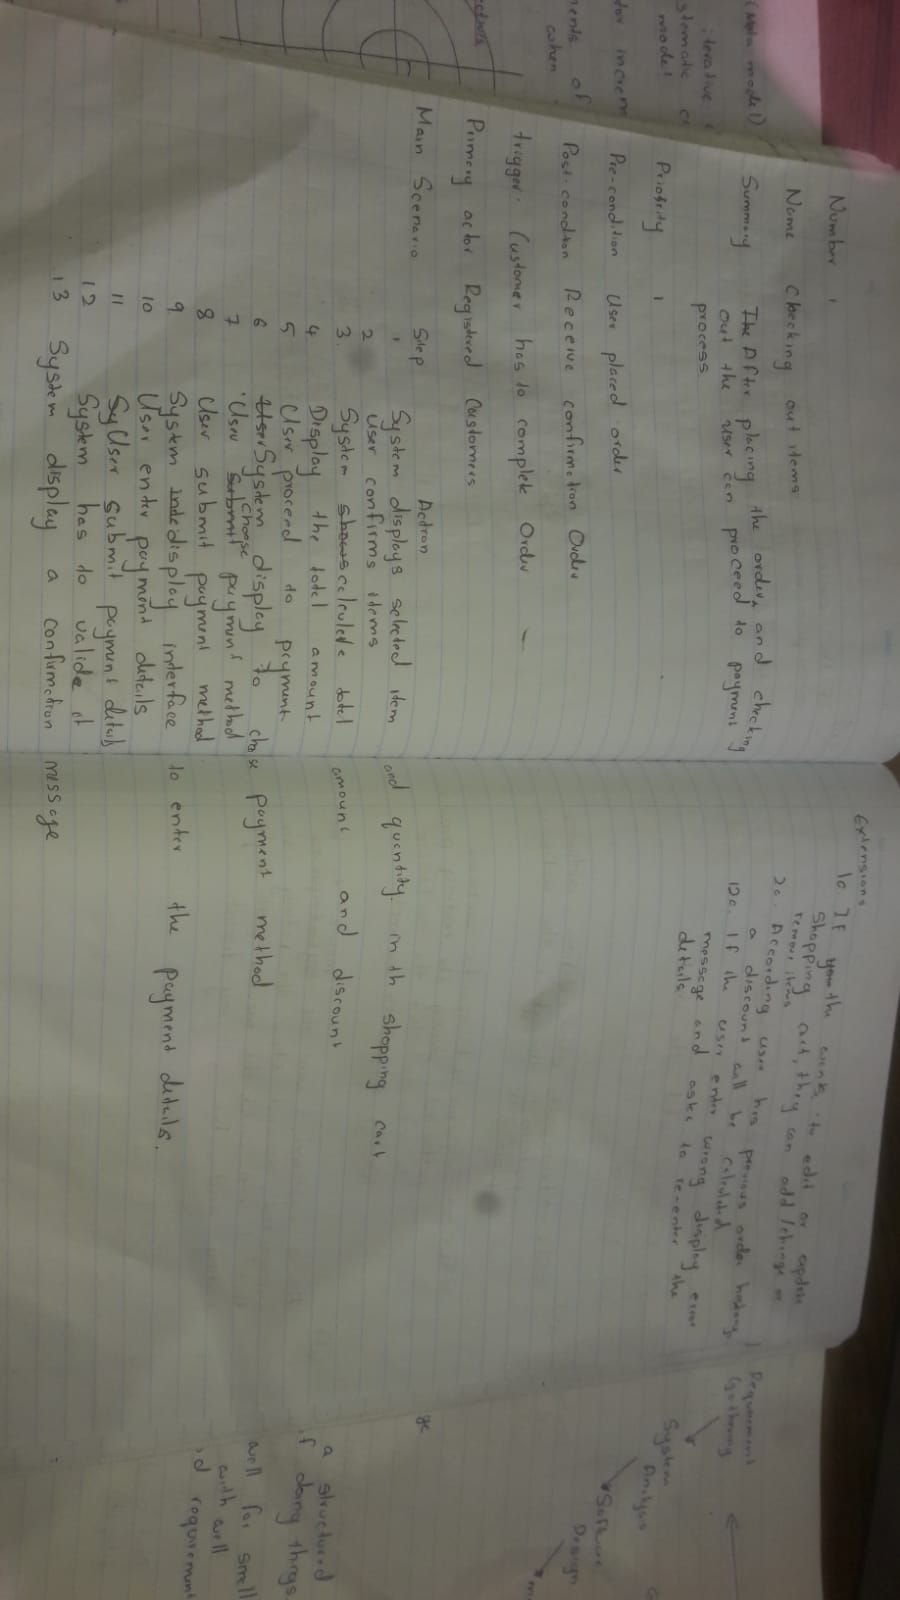 Number 1
Name Checking out items
Summary The After placing the order, and checking
out the user can proceed to payment
process
Priority 1
Pre-condition User placed order
Post-condition Receive confirmation Order
trigger. Customer has to complete Order
Primary actor Registered Customers
Main Scenario Step Action
1 System displays selected item and quantity. in th shopping cart
2 user confirms items
3. System shows calculate total amount and discount
4 Display the total amount
5 User proceed to payment
6 User System display to choose payment method
7 User submit choose payment method
8 User submit payment method
9 System inde display interface to enter the payment details.
10 User enter payment details
11 Sy User submit payment details
12 System has to valide it
13 System display a confirmation message
Extensions
1a If you the wants to edit or update
shopping cart, they can add /change or
remove items
2a. According user has previous order history,
a discount will be calculated
12a. If the user enter wrong display error
message and asks to re-enter the
details
model)
iterative
model
increm
of
when
Requirement
Gathering
System
Analysis
Software
Design
a structured
f doing things.
well for small
with well
d requirement